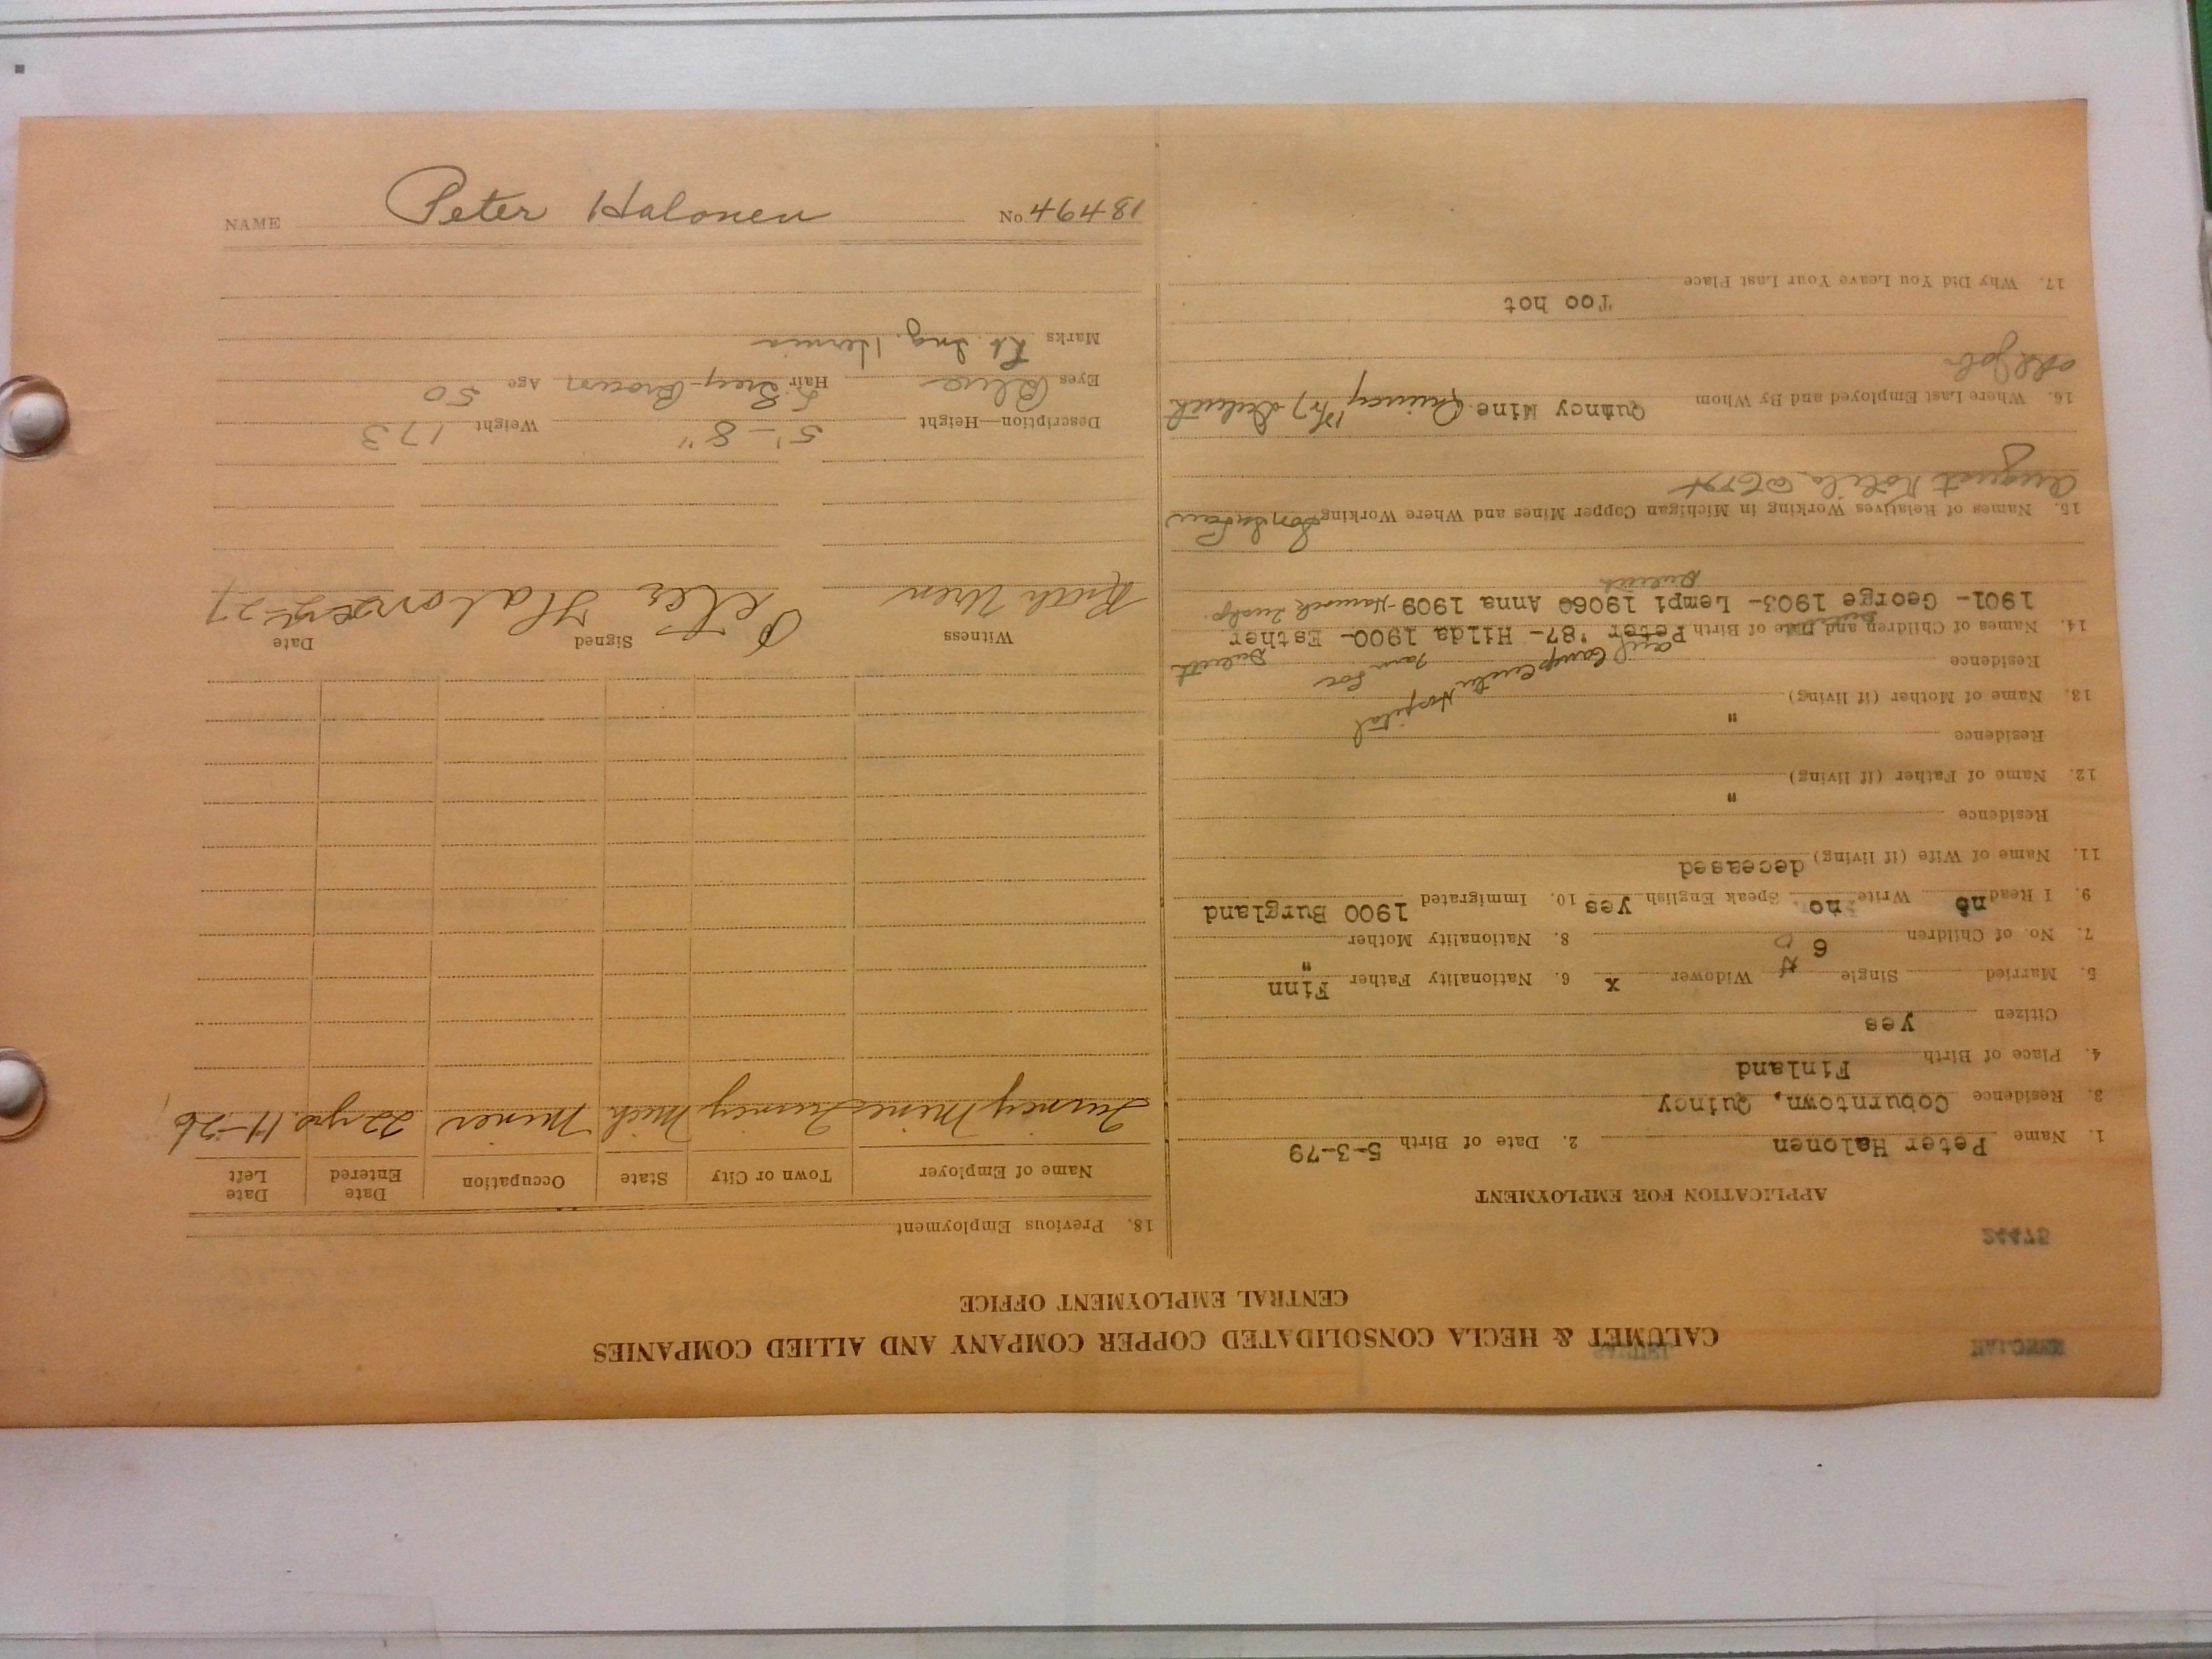 CALUMET & HECLA CONSOLIDATED COPPER COMPANY AND ALLIED COMPANIES
CENTRAL EMPLOYMENT OFFICE
APPLICATION FOR EMPLOYMENT
1. Name Peter Halonen 2. Date of Birth 5-3-79
3. Residence Coburntown, Quincy
4. Place of Birth Finland
Citizen yes
5. Married Single Widower x 6. Nationality Father Finn
7. No. of Children 6 8. Nationality Mother "
9. I Read no Write no Speak English yes 10. Immigrated 1900 Burgland
11. Name of Wife (if living) deceased
Residence
12. Name of Father (if living) "
Residence
13. Name of Mother (if living) "
Residence
14. Names of Children and Date of Birth Peter '87- Hilda 1900- Esther
1901- George 1903- Lempi 1906 Anna 1909
15. Names of Relatives Working in Michigan Copper Mines and Where Working Son in law
August
16. Where Last Employed and By Whom Quincy Mine Quincy Duluth
odd jobs
17. Why Did You Leave Your Last Place
Too hot
18. Previous Employment
Name of Employer Town or City State Occupation Date Entered Date Left
Quincy Mine Quincy Mich Miner 22 yrs. 11-26
Witness Signed Date
Peter Halonen
Description—Height 5'-8" Weight 173
Eyes Blue Hair Grey-Brown Age 50
Marks Rt. Ing. Hernia
NAME Peter Halonen No 46481